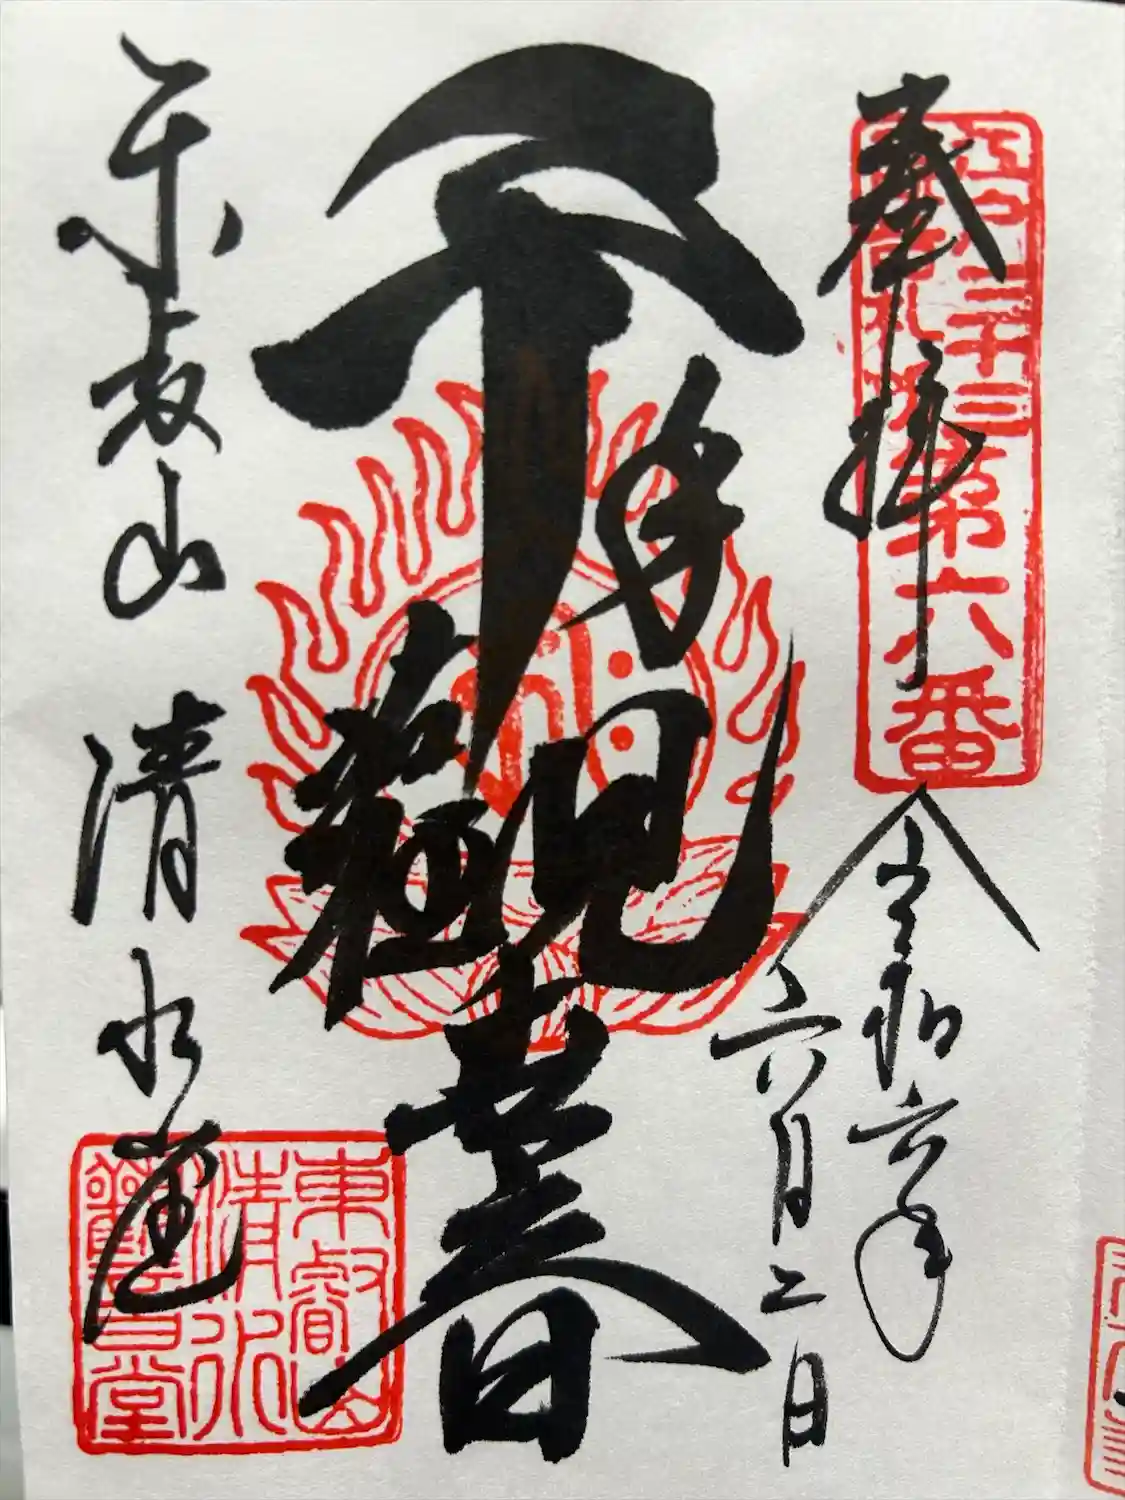 奉拝
江戸三十三
観音札所
第六番
令和六年
六月二日
千手観世音
東叡山 清水堂
東叡山
清水
觀音堂